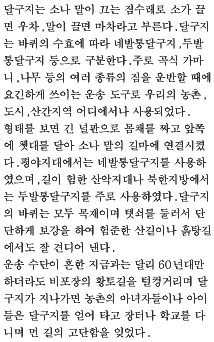 달구지는 소나 말이 끄는 짐수레로 소가 끌
면 우차, 말이 끌면 마차라고 부른다. 달구지
는 바퀴의 수효에 따라 네발통달구지, 두발
통달구지 등으로 구분한다. 주로 곡식 가마
니, 나무 등의 여러 종류의 짐을 운반할 때에
요긴하게 쓰이는 운송 도구로 우리의 농촌,
도시, 산간지역 어디에서나 사용되었다.
형태를 보면 긴 널판으로 몸체를 짜고 앞쪽
에 쳇대를 달아 소나 말의 길마에 연결시켰
다. 평야지대에서는 네발통달구지를 사용하
였으며, 길이 험한 산악지대나 북한지방에서
는 두발통달구지를 주로 사용하였다. 달구지
의 바퀴는 모두 목제이며 탯쇠를 둘러서 단
단하게 보강을 하여 험준한 산길이나 흙탕길
에서도 잘 견디어 낸다.
운송 수단이 흔한 지금과는 달리 60년대만
하더라도 비포장의 황토길을 털컹거리며 달
구지가 지나가면 농촌의 아녀자들이나 아이
들은 달구지를 얻어 타고 장터나 학교를 다
니며 먼 길의 고단함을 잊었다.